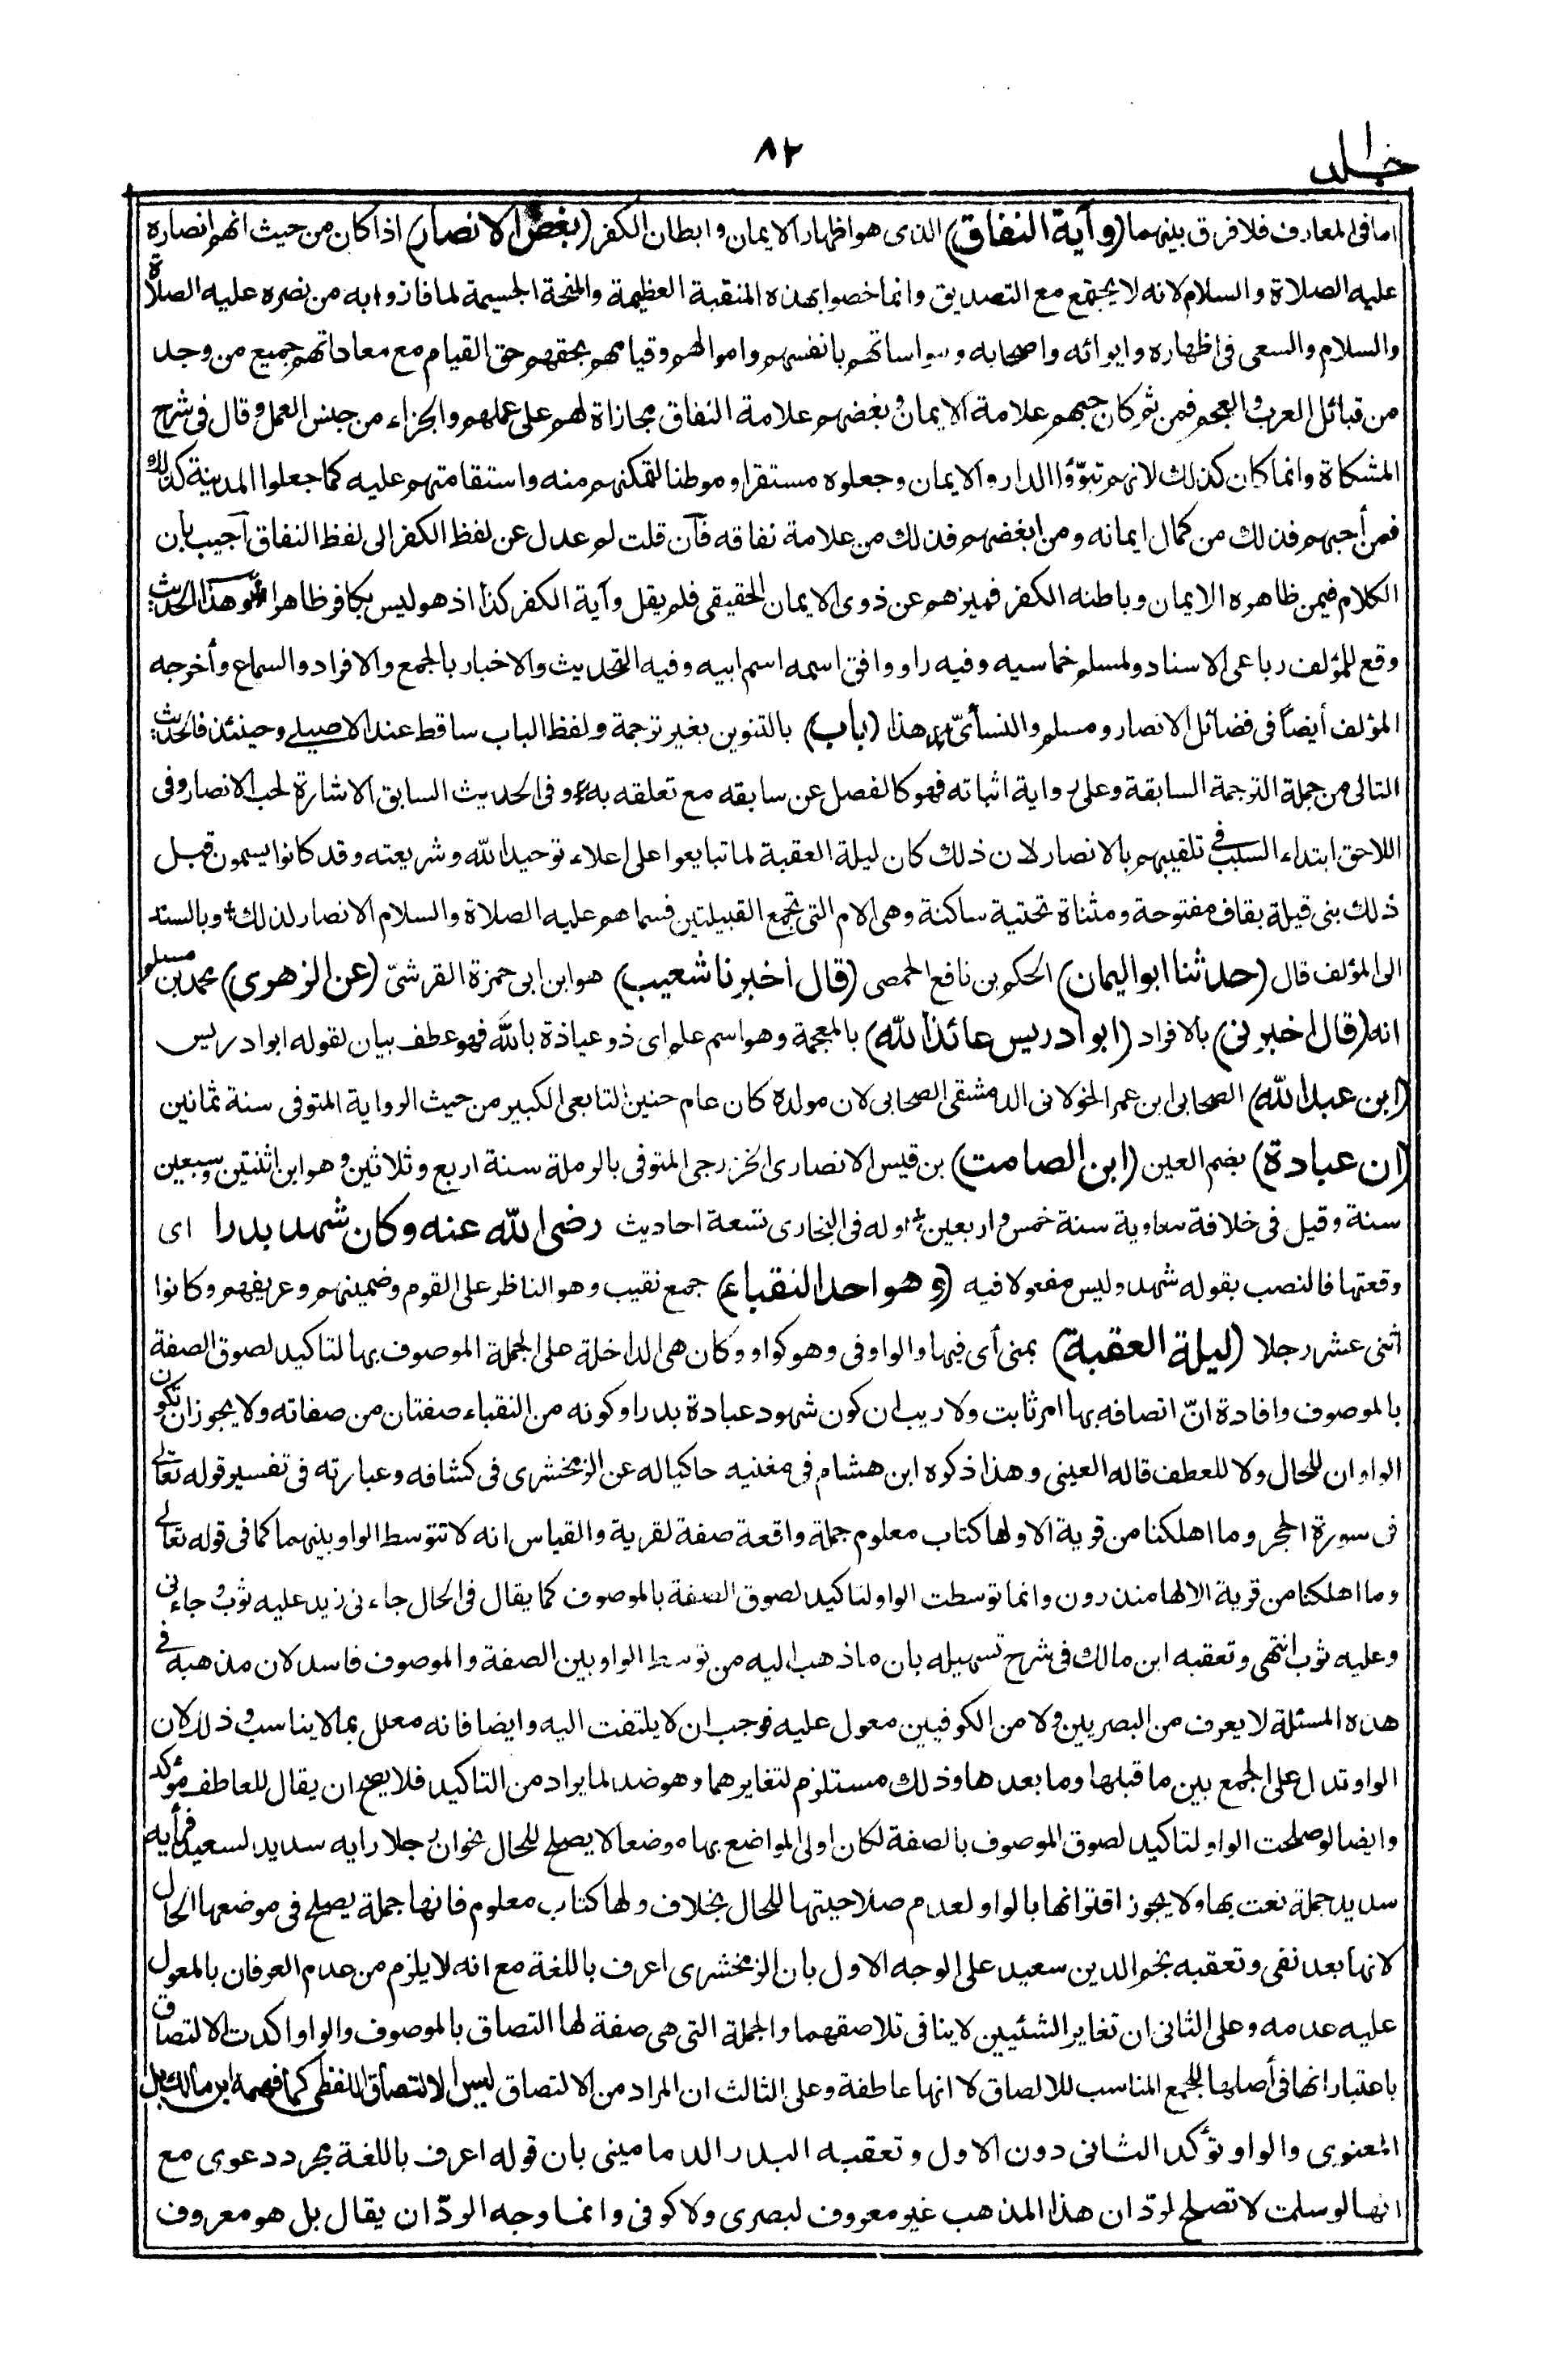 جلد ا
٨٢
اما فى المعارف فلا فرق بينهما (وآية النفاق) الذى هو اظهار الايمان وابطان الكفر (بغض الانصار) اذا كان من حيث انهم انصاره
عليه الصلاة والسلام لانه لا يجتمع مع التصديق وانما خصوا بهذه المنقبة العظيمة والمنحة الجسيمة لما فازوا به من نصره عليه الصلاة
والسلام والسعى فى اظهاره وايوائه واصحابه ومواساتهم بانفسهم واموالهم وقيامهم بحقهم حق القيام مع معاداتهم جميع من وجد
من قبائل العرب والعجم فمن ثم كان حبهم علامة الايمان وبغضهم علامة النفاق مجازاة لهم على عملهم والجزاء من جنس العمل وقال فى شرح
المشكاة وانما كان كذلك لانهم تبوّؤا الدار والايمان وجعلوه مستقرا وموطنا لتمكنهم منه واستقامتهم عليه كما جعلوا المدينة كذلك
فمن أحبهم فذلك من كمال ايمانه ومن ابغضهم فذلك من علامة نفاقه فآن قلت لم عدل عن لفظ الكفر الى لفظ النفاق آجيب بأن
الكلام فيمن ظاهره الايمان وباطنه الكفر فميزهم عن ذوى الايمان الحقيقى فلم يقل وآية الكفر كذا اذ هو ليس بكافر ظاهرا وهذا الحديث
وقع للمؤلف رباعى الاسناد ولمسلم خماسيه وفيه راو وافق اسمه اسم ابيه وفيه التحديث والاخبار بالجمع والافراد والسماع وأخرجه
المؤلف أيضاً فى فضائل الانصار ومسلم والنسأىّ هذا (باب) بالتنوين بغير ترجمة ولفظ الباب ساقط عند الاصيلى وحينئذ فالحديث
التالى من جملة الترجمة السابقة وعلى رواية اثباته فهو كالفصل عن سابقه مع تعلقه به وفى الحديث السابق الاشارة لحب الانصار وفى
اللاحق ابتداء السبب فى تلقيبهم بالانصار لان ذلك كان ليلة العقبة لما تبايعوا على إعلاء توحيد الله وشريعته وقد كانوا يسمون قبل
ذلك بنى قيلة بقاف مفتوحة ومثناة تحتية ساكنة وهى الام التى تجمع القبيلتين فسماهم عليه الصلاة والسلام الانصار لذلك وبالسند
الى المؤلف قال (حدثنا ابو اليمان) الحكم بن نافع الحمصى (قال اخبرنا شعيب) هو ابن ابى حمزة القرشىّ (عن الزهرى) محمد بن مسلم
انه (قال اخبرنى) بالافراد (ابو ادريس عائذ الله) بالمعجمة وهو اسم علم اى ذو عياذة بالله فهو عطف بيان لقوله ابو ادريس
(ابن عبد الله) الصحابى ابن عمر الخولانى الدمشقى الصحابى لان مولده كان عام حنين التابعى الكبير من حيث الرواية المتوفى سنة ثمانين
(ان عبادة) بضم العين (ابن الصامت) بن قيس الانصارى الخزرجى المتوفى بالرملة سنة اربع وثلاثين وهو ابن اثنتين وسبعين
سنة وقيل فى خلافة معاوية سنة خمس واربعين وله فى البخارى تسعة احاديث رضى الله عنه وكان شهد بدرا اى
وقعتها فالنصب بقوله شهد وليس مفعولا فيه (وهو احد النقباء) جمع نقيب وهو الناظر على القوم وضمينهم وعريفهم وكانوا
اثنى عشر رجلا (ليلة العقبة) بمنى أى فيها والواو فى وهو كواو وكان هى الداخلة على الجملة الموصوف بها لتاكيد لصوق الصفة
بالموصوف وافادة انّ اتصافه بها امر ثابت ولا ريب ان كون شهود عبادة بدرا وكونه من النقباء صفتان من صفاته ولا يجوز ان تكون
الواو ان للحال ولا للعطف قاله العينى وهذا ذكره ابن هشام فى مغنيه حاكياله عن الزمخشرى فى كشافه وعبارته فى تفسير قوله تعالى
فى سورة الحجر وما اهلكنا من قرية الا ولها كتاب معلوم جملة واقعة صفة لقرية والقياس انه لا تتوسط الواو بينهما كما فى قوله تعالى
وما اهلكنا من قرية الا لها منذرون وانما توسطت الواو لتاكيد لصوق الصفة بالموصوف كما يقال فى الحال جاءنى زيد عليه ثوب وجاءنى
وعليه ثوب انتهى وتعقبه ابن مالك فى شرح تسهيله بان ما ذهب اليه من توسط الواو بين الصفة والموصوف فاسد لان مذهبه فى
هذه المسئلة لا يعرف من البصريين ولا من الكوفيين معول عليه فوجب ان لا يلتفت اليه وايضا فانه معلل بما لا يناسب وذلك لان
الواو تدل على الجمع بين ما قبلها وما بعدها وذلك مستلزم لتغايرهما وهو ضد لما يراد من التاكيد فلا يصح ان يقال للعاطف مؤكد
وايضا لو صلحت الواو لتاكيد لصوق الموصوف بالصفة لكان اولى المواضع بها موضعا لا يصلح للحال نحو ان رجلا رايه سديد لسعيد فرأيه
سديد جملة نعت بها ولا يجوز اقترانها بالواو لعدم صلاحيتها للحال بخلاف ولها كتاب معلوم فانها جملة يصلح فى موضعها الحال
لانها بعد نفى وتعقبه نجم الدين سعيد على الوجه الاول بان الزمخشرى اعرف باللغة مع انه لا يلزم من عدم العرفان بالمعول
عليه عدمه وعلى الثانى ان تغاير الشئيين لا ينافى تلاصقهما والجملة التى هى صفة لها التصاق بالموصوف والواو اكدت الالتصاق
باعتبار انها فى أصلها للجمع المناسب للالصاق لا انها عاطفة وعلى الثالث ان المراد من الالتصاق ليس الالتصاق اللفظى كما فهمه ابن مالك بل
المعنوى والواو تؤكد الثانى دون الاول وتعقبه البدر الدمامينى بان قوله اعرف باللغة مجرد دعوى مع
انها لو سلمت لا تصلح لردّ ان هذا المذهب غير معروف لبصرى ولا كوفى وانما وجه الردّ ان يقال بل هو معروف